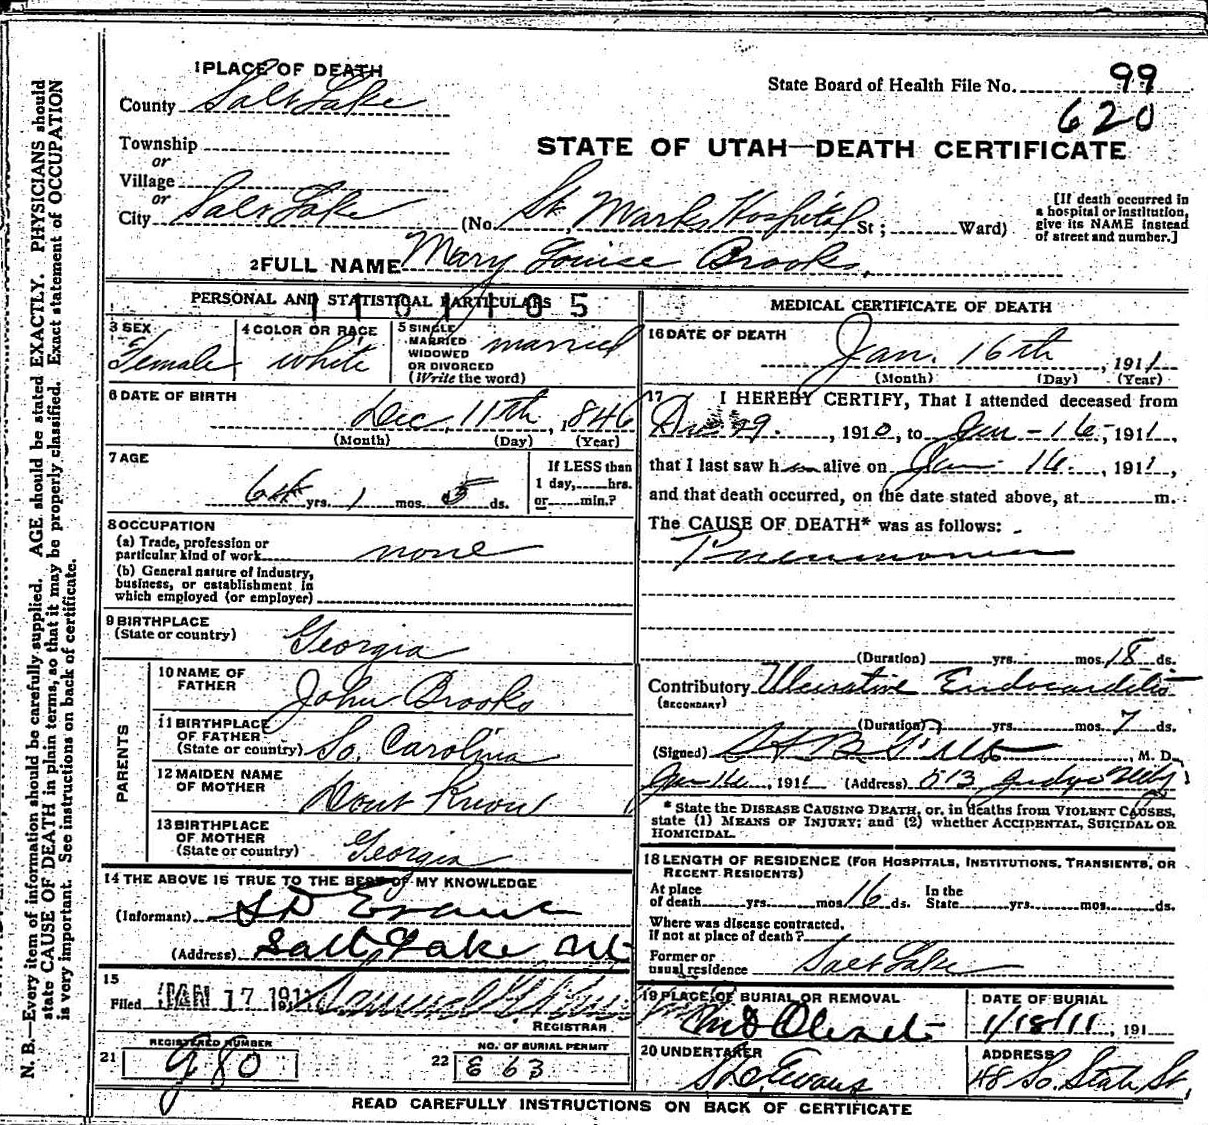 N. B.—Every item of information should be carefully supplied. AGE should be stated EXACTLY. PHYSICIANS should
state CAUSE OF DEATH in plain terms, so that it may be properly classified. Exact statement of OCCUPATION
is very important. See instructions on back of certificate.
1 PLACE OF DEATH
County Salt Lake
Township
or
Village
or
City Salt Lake
State Board of Health File No. 99
620
STATE OF UTAH—DEATH CERTIFICATE
(No. St. Marks Hospital St; Ward)
[If death occurred in
a hospital or institution,
give its NAME instead
of street and number.]
2 FULL NAME Mary Louise Brooks
PERSONAL AND STATISTICAL PARTICULARS
1101105
3 SEX
Female
4 COLOR OR RACE
white
5 SINGLE
MARRIED
WIDOWED
OR DIVORCED
(Write the word)
married
6 DATE OF BIRTH
Dec. 11th, 1846
(Month) (Day) (Year)
7 AGE
64 yrs. 1 mos. 5 ds.
If LESS than
1 day, hrs.
or min.?
8 OCCUPATION
(a) Trade, profession or
particular kind of work none
(b) General nature of industry,
business, or establishment in
which employed (or employer)
9 BIRTHPLACE
(State or country) Georgia
PARENTS
10 NAME OF
FATHER John Brooks
11 BIRTHPLACE
OF FATHER
(State or country) So. Carolina
12 MAIDEN NAME
OF MOTHER Dont Know
13 BIRTHPLACE
OF MOTHER
(State or country) Georgia
14 THE ABOVE IS TRUE TO THE BEST OF MY KNOWLEDGE
(Informant) S D Evans
(Address) Salt Lake
15
Filed JAN 17 191
REGISTRAR
21 REGISTERED NUMBER
980
22 NO. OF BURIAL PERMIT
663
MEDICAL CERTIFICATE OF DEATH
16 DATE OF DEATH
Jan. 16th, 1911
(Month) (Day) (Year)
17 I HEREBY CERTIFY, That I attended deceased from
29, 1910, to Jan - 16, 1911,
that I last saw her alive on Jan 16, 1911,
and that death occurred, on the date stated above, at m.
The CAUSE OF DEATH* was as follows:
Pneumonia
(Duration) yrs. mos. 18 ds.
Contributory Ulcerative Endocarditis
(SECONDARY)
(Duration) yrs. mos. 7 ds.
(Signed) M. D.
Jan 16, 1911 (Address) 513 Judge Bldg
* State the DISEASE CAUSING DEATH, or, in deaths from VIOLENT CAUSES,
state (1) MEANS OF INJURY; and (2) whether ACCIDENTAL, SUICIDAL OR
HOMICIDAL.
18 LENGTH OF RESIDENCE (FOR HOSPITALS, INSTITUTIONS, TRANSIENTS, OR
RECENT RESIDENTS)
At place
of death yrs. mos. 16 ds.
In the
State yrs. mos. ds.
Where was disease contracted,
if not at place of death?
Former or
usual residence Salt Lake
19 PLACE OF BURIAL OR REMOVAL
Mt Olivet
DATE OF BURIAL
1/18/11, 191
20 UNDERTAKER
S D Evans
ADDRESS
48 So. State St.
READ CAREFULLY INSTRUCTIONS ON BACK OF CERTIFICATE